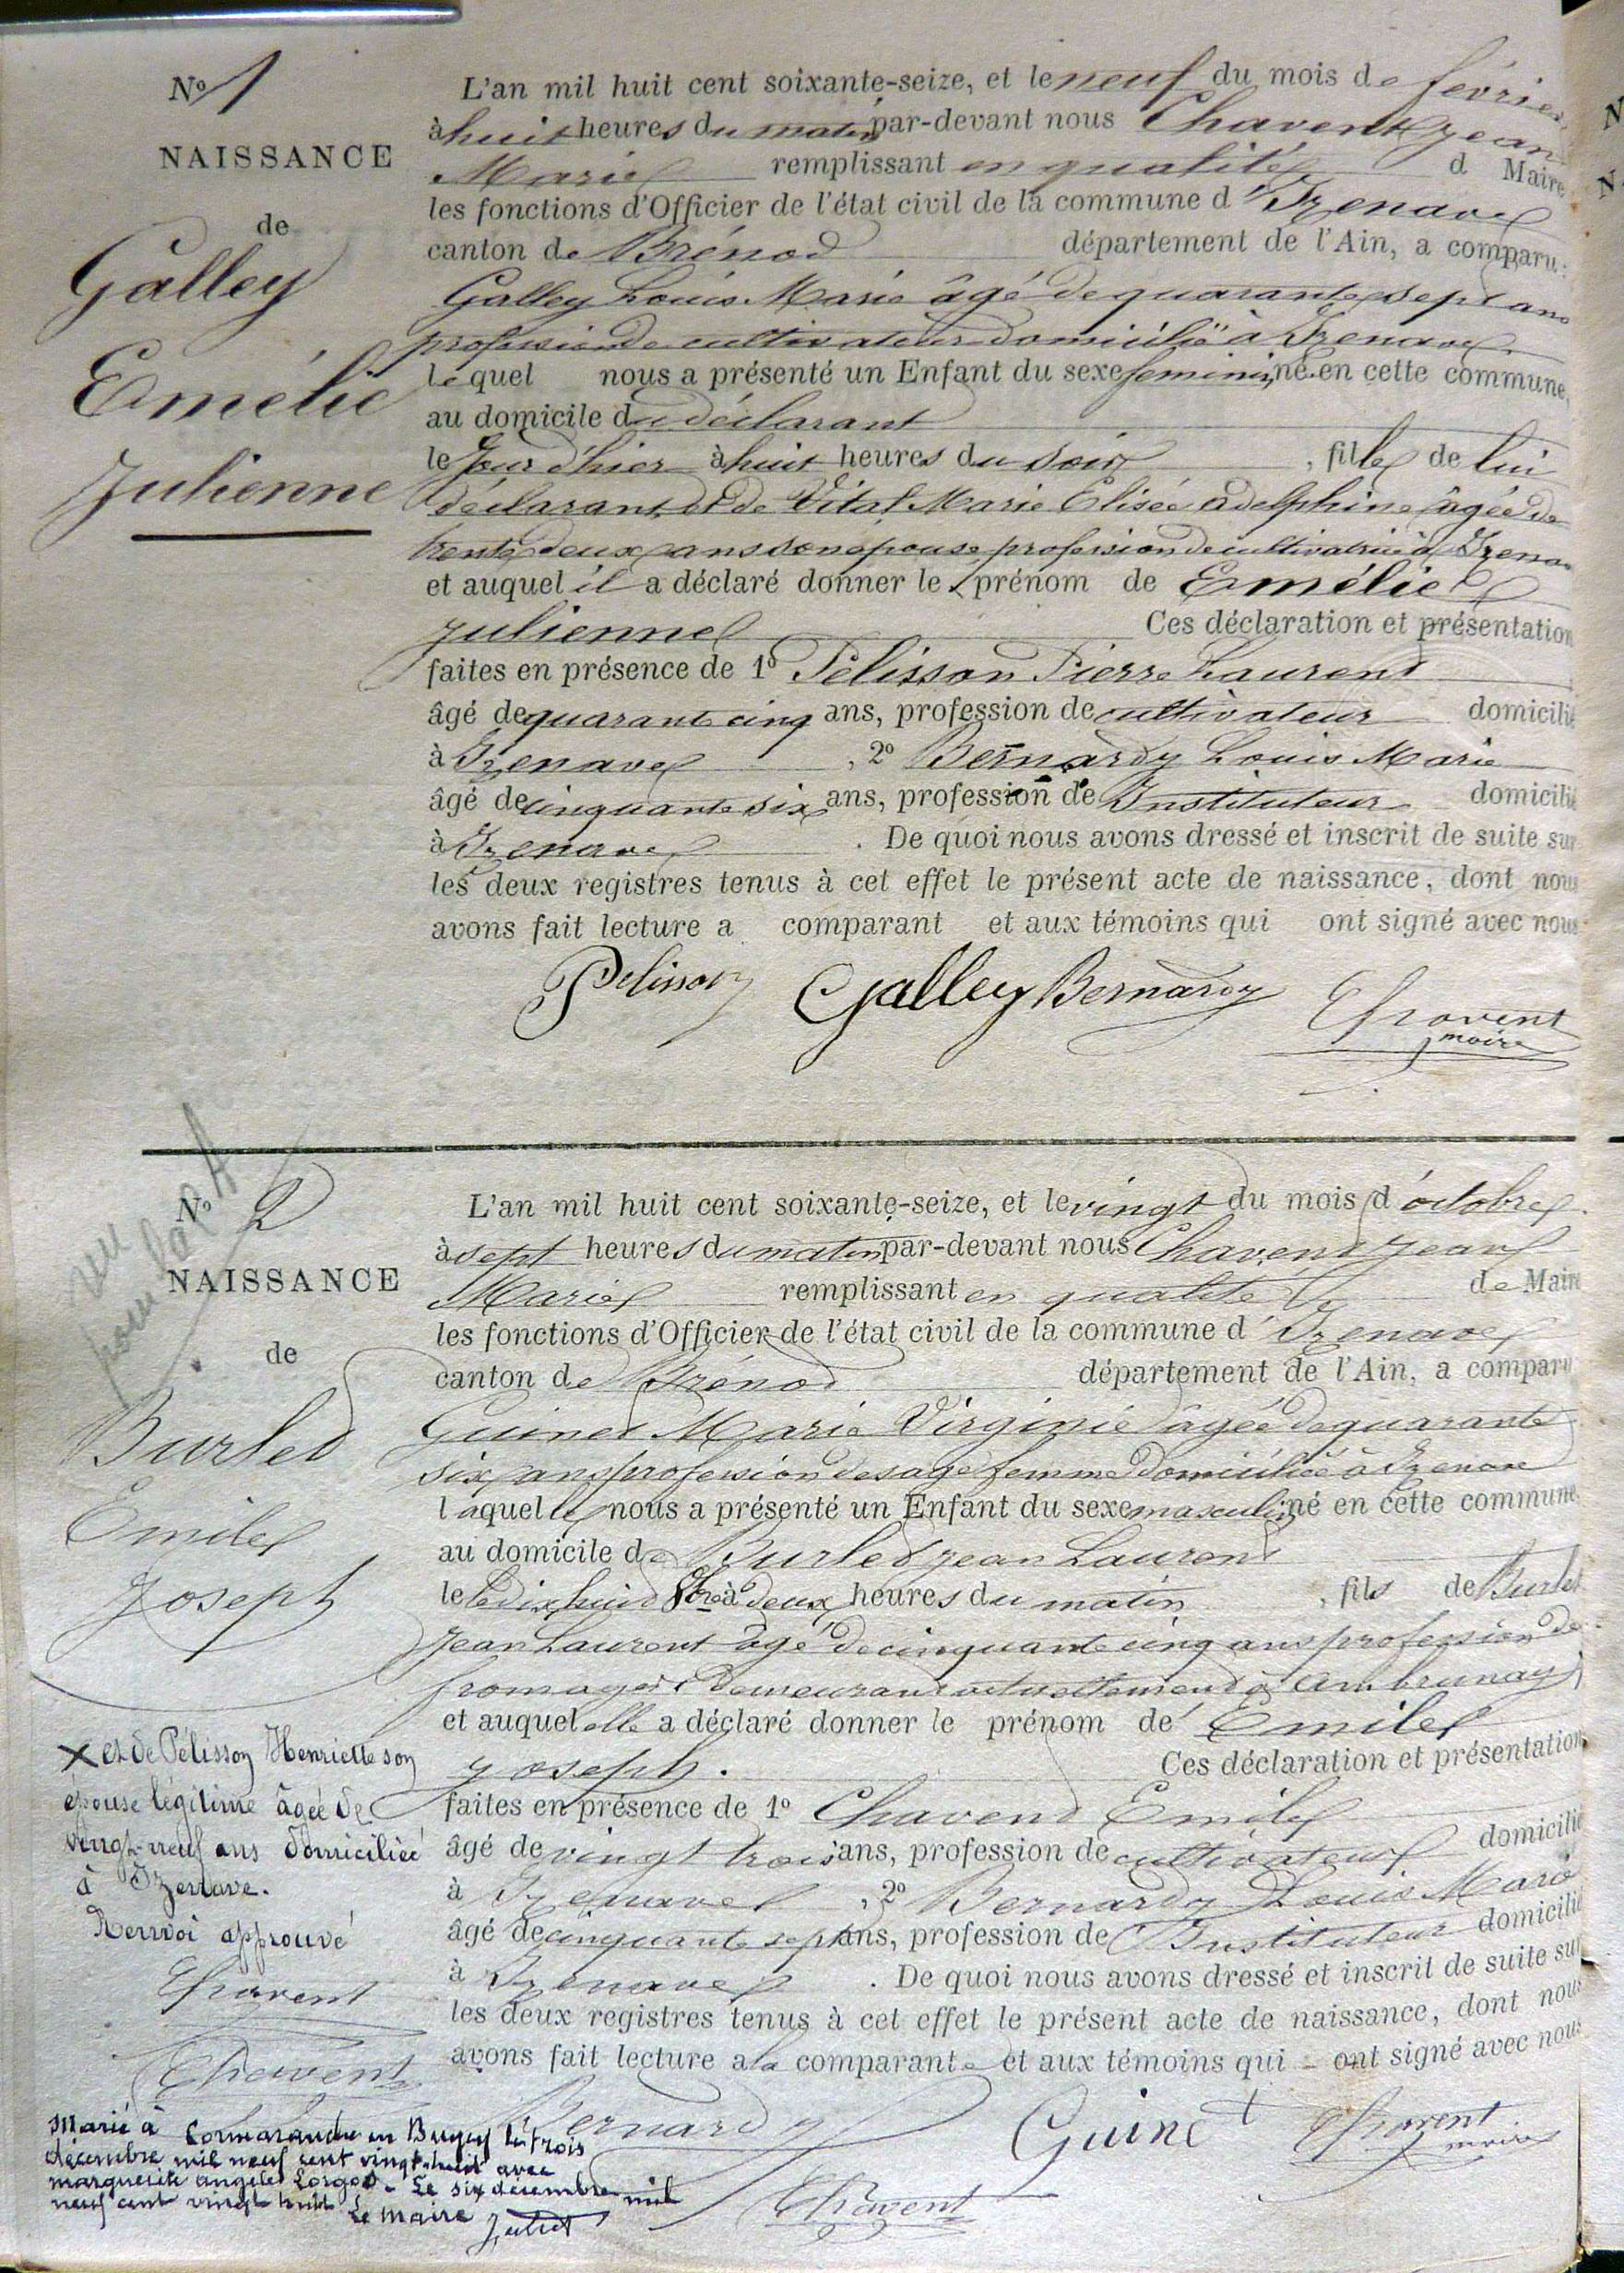 No 1
NAISSANCE
de
Galley
Emélie
Julienne
L'an mil huit cent soixante-seize, et le neuf du mois de février
à huit heures du matin par-devant nous Chavent Jean
Marie remplissant en qualité d Maire
les fonctions d'Officier de l'état civil de la commune d'Izenave
canton de Brénod département de l'Ain, a comparu:
Galley Louis Marie âgé de quarante sept ans
profession de cultivateur domicilié à Izenave
lequel nous a présenté un Enfant du sexe feminin, né en cette commune,
au domicile du déclarant
le Jour d'hier à huit heures du soir, fille de lui
déclarant et de Vital Marie Elisée Adelphine âgée de
trente deux ans son épouse profession de cultivatrice à Izenave
et auquel il a déclaré donner le prénom de Emélie
Julienne Ces déclaration et présentation
faites en présence de 1o Pélisson Pierre Laurent
âgé de quarante cinq ans, profession de cultivateur domicilié
à Izenave, 2o Bernardy Louis Marie
âgé de cinquante six ans, profession de Instituteur domicilié
à Izenave. De quoi nous avons dressé et inscrit de suite sur
les deux registres tenus à cet effet le présent acte de naissance, dont nous
avons fait lecture a comparant et aux témoins qui ont signé avec nous
Pelisson Galley Bernardy Chavent
maire
No 2
NAISSANCE
de
Burlet
Emile
Joseph
L'an mil huit cent soixante-seize, et le vingt du mois d'octobre
à sept heures du matin par-devant nous Chavent Jean
Marie remplissant en qualité de Maire
les fonctions d'Officier de l'état civil de la commune d'Izenave
canton de Brénod département de l'Ain, a comparu
Guinet Marie Virginie âgée de quarante
six ans profession de sage femme domiciliée à Izenave
laquelle nous a présenté un Enfant du sexe masculin, né en cette commune,
au domicile de Burlet Jean Laurent
le le dix huit 8bre à deux heures du matin, fils de Burlet
Jean Laurent âgé de cinquante cinq ans profession de
fromager demeurant actuellement à Ambrunay
et auquel elle a déclaré donner le prénom de Emile
Joseph. Ces déclaration et présentation
faites en présence de 1o Chavent Emile
âgé de vingt trois ans, profession de cultivateur domicilié
à Izenave, 2o Bernardy Louis Marie
âgé de cinquante sept ans, profession de Instituteur domicilié
à Izenave. De quoi nous avons dressé et inscrit de suite sur
les deux registres tenus à cet effet le présent acte de naissance, dont nous
avons fait lecture a la comparante et aux témoins qui ont signé avec nous
Bernardy Guinet Chavent
maire
Chavent
X et de Pélisson Henriette son
épouse légitime âgée de
vingt-neuf ans domiciliée
à Izenave.
Renvoi approuvé
Chavent
Chavent
Marié à Cormaranche en Bugey le trois
décembre mil neuf cent vingt-huit avec
marguerite angèle . Le six décembre mil
neuf cent vingt huit Le maire